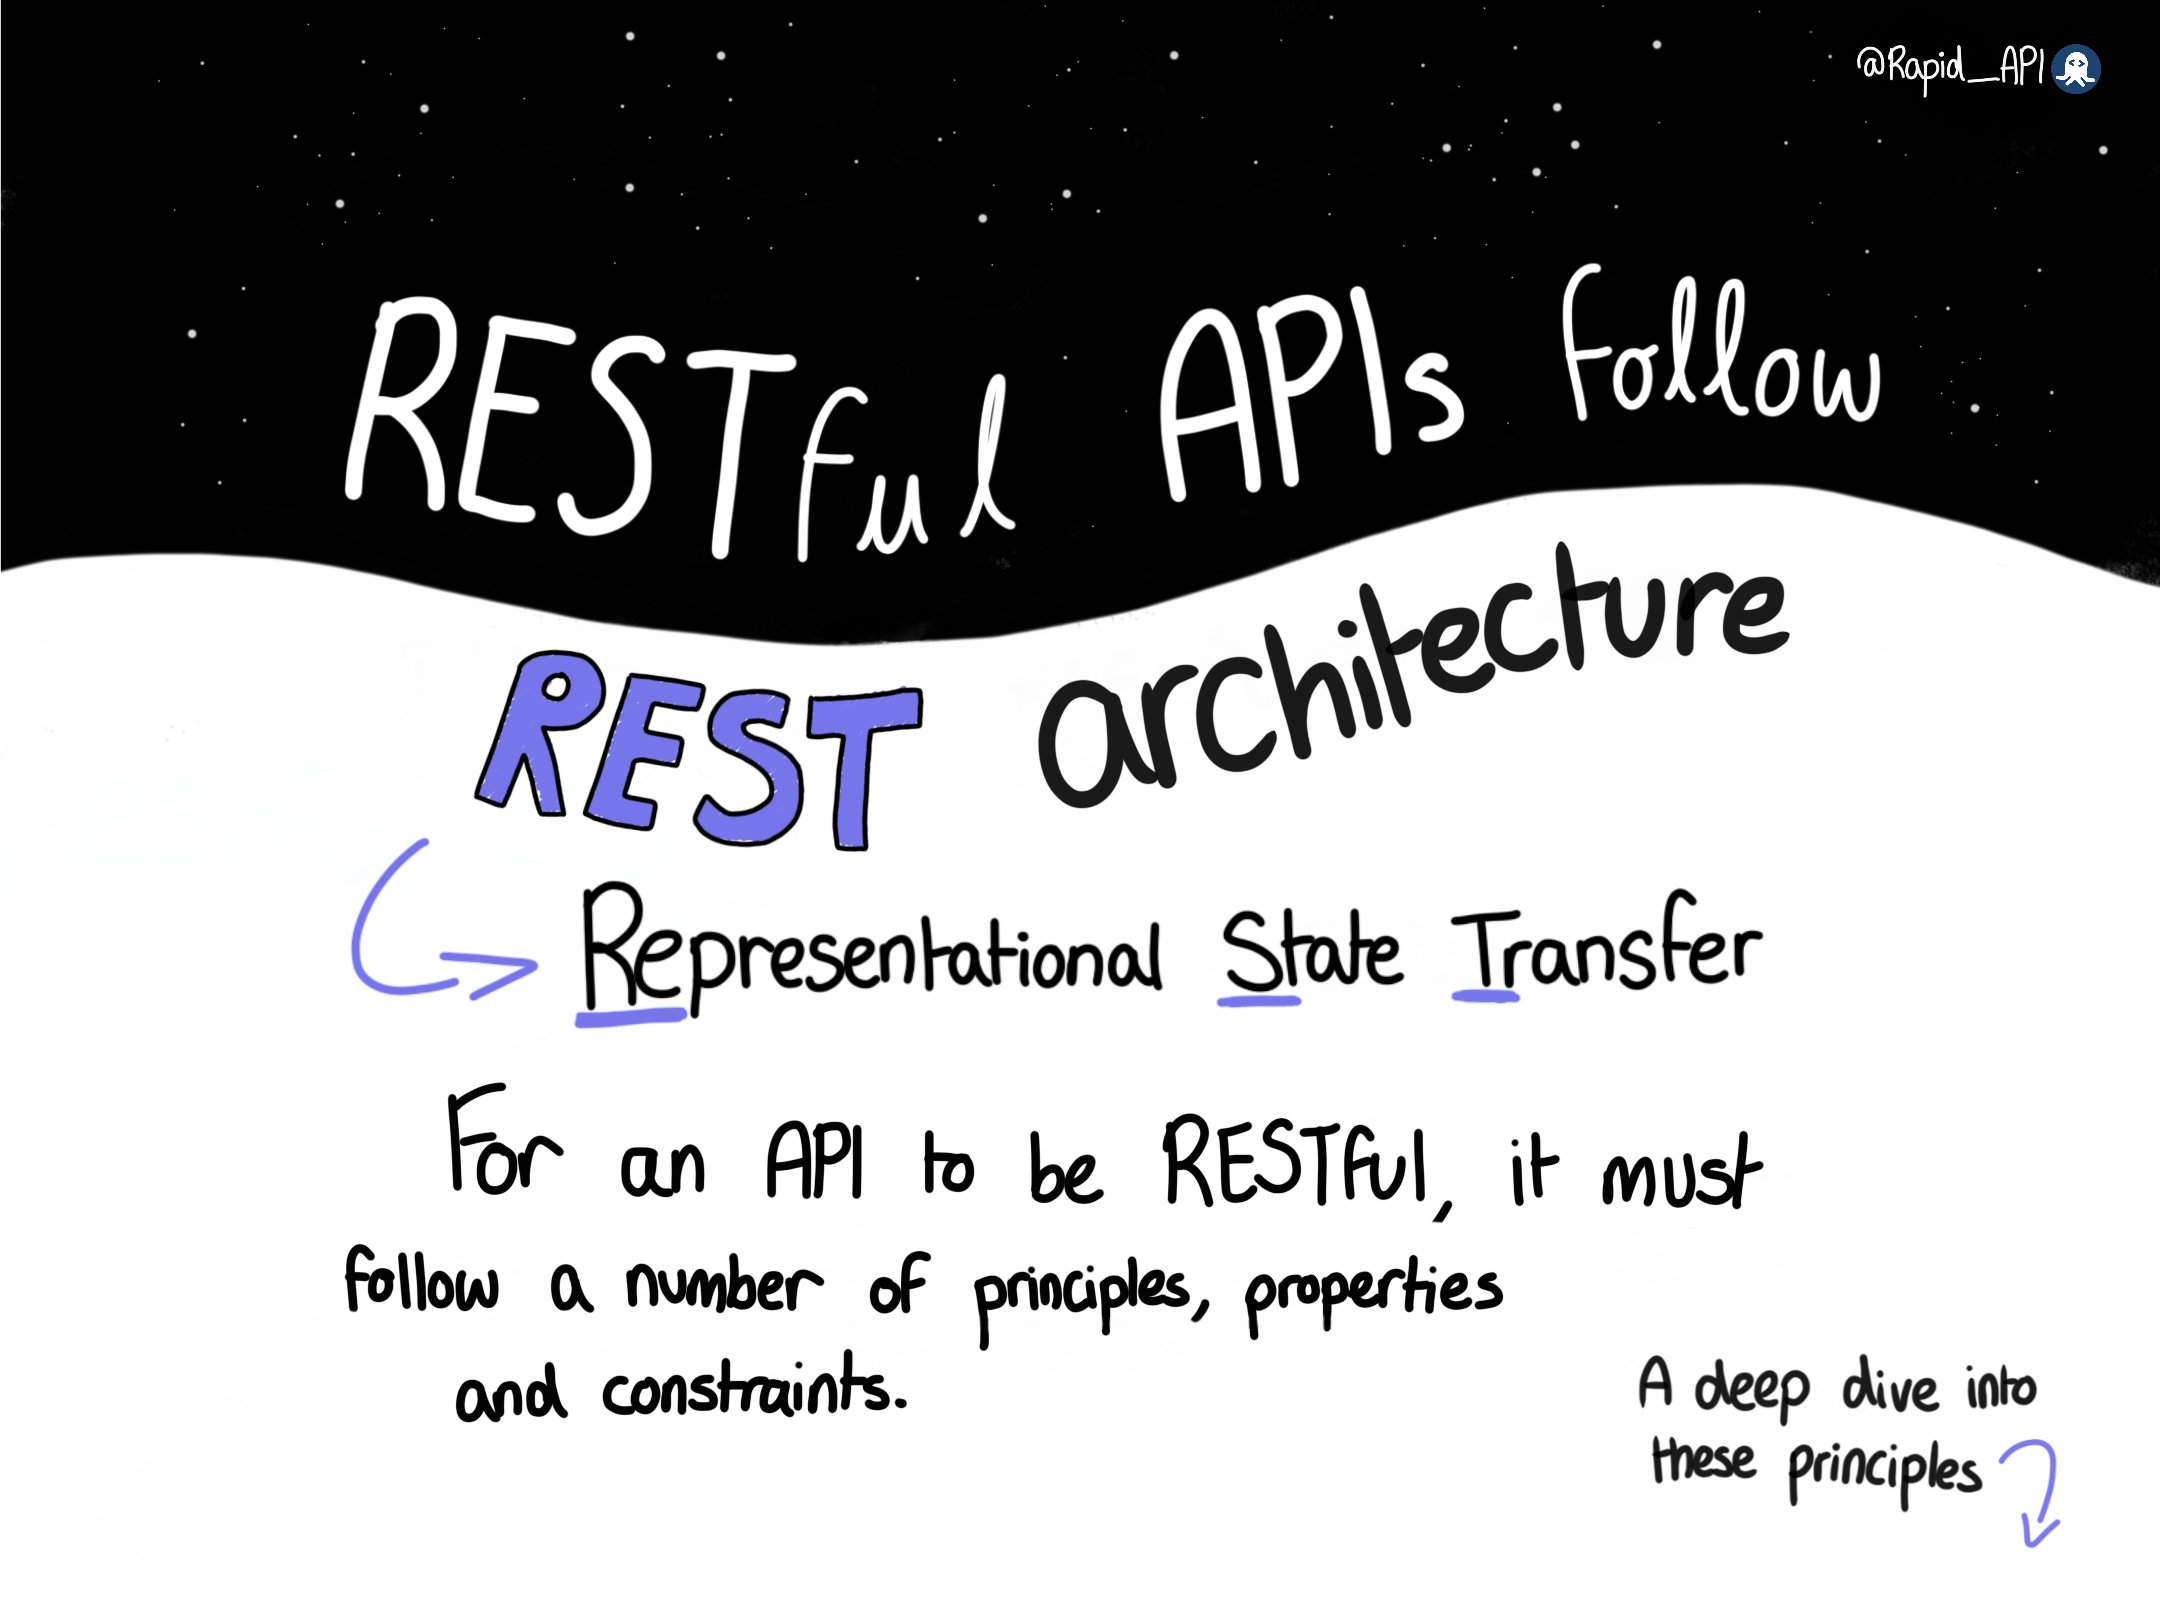 @Rapid_API
RESTful APIs follow
REST architecture
Representational State Transfer
For an API to be RESTful, it must
follow a number of principles, properties
and constraints.
A deep dive into
these principles